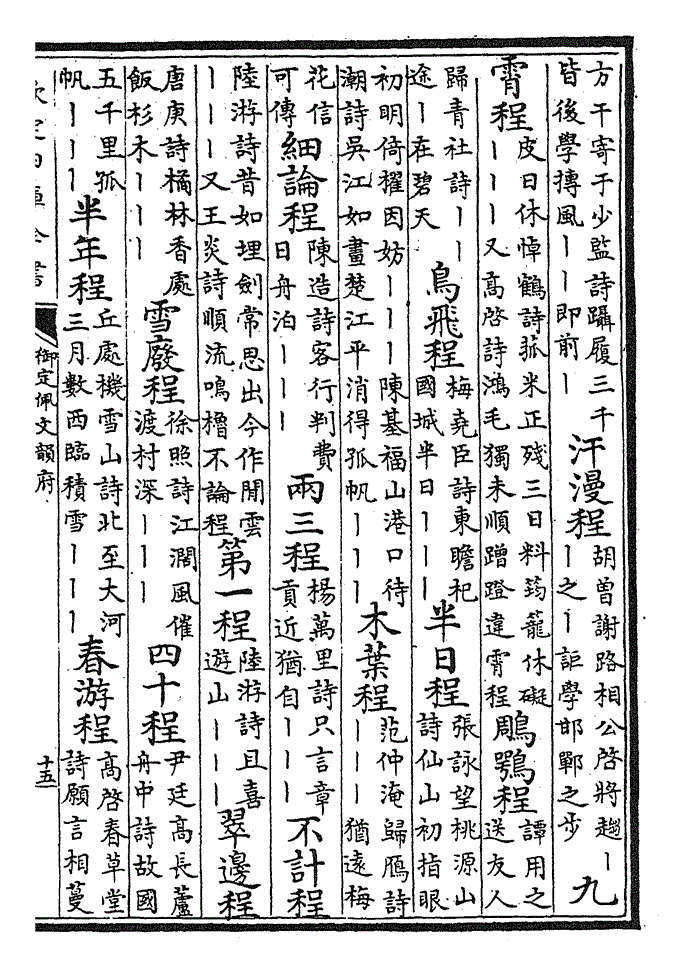 方干寄于少監詩躡履三千
皆後學摶風丨丨即前丨
汗漫程
胡曾謝路相公啓將趨丨
丨之丨詎學邯鄲之步
九
霄程
皮日休悼鶴詩菰米正殘三日料筠籠休礙
丨丨丨又高啓詩鴻毛獨未順蹭蹬違霄程
鵰鶚程
譚用之
送友人
歸青社詩丨丨丨
途丨在碧天
鳥飛程
梅堯臣詩東瞻杞
國城半日丨丨丨
半日程
張詠望桃源山
詩仙山初指眼
初明倚櫂因妨丨丨丨陳基福山港口待
潮詩吳江如畫楚江平消得孤帆丨丨丨
木葉程
范仲淹歸鴈詩
丨丨丨猶遠梅
花信
可傳
細論程
陳造詩客行判費
日舟泊丨丨丨
兩三程
楊萬里詩只言章
貢近猶自丨丨丨
不計程
陸游詩昔如埋劍常思出今作閒雲
丨丨丨又王炎詩順流鳴櫓不論程
第一程
陸游詩且喜
遊山丨丨丨
翠邊程
唐庚詩橘林香處
飯杉木丨丨丨
雪廢程
徐照詩江濶風催
渡村深丨丨丨
四十程
尹廷高長蘆
舟中詩故國
五千里孤
帆丨丨丨
半年程
丘處機雪山詩北至大河
三月數西臨積雪丨丨丨
春游程
高啓春草堂
詩願言相蔓
欽定四庫全書
御定佩文韻府
十五